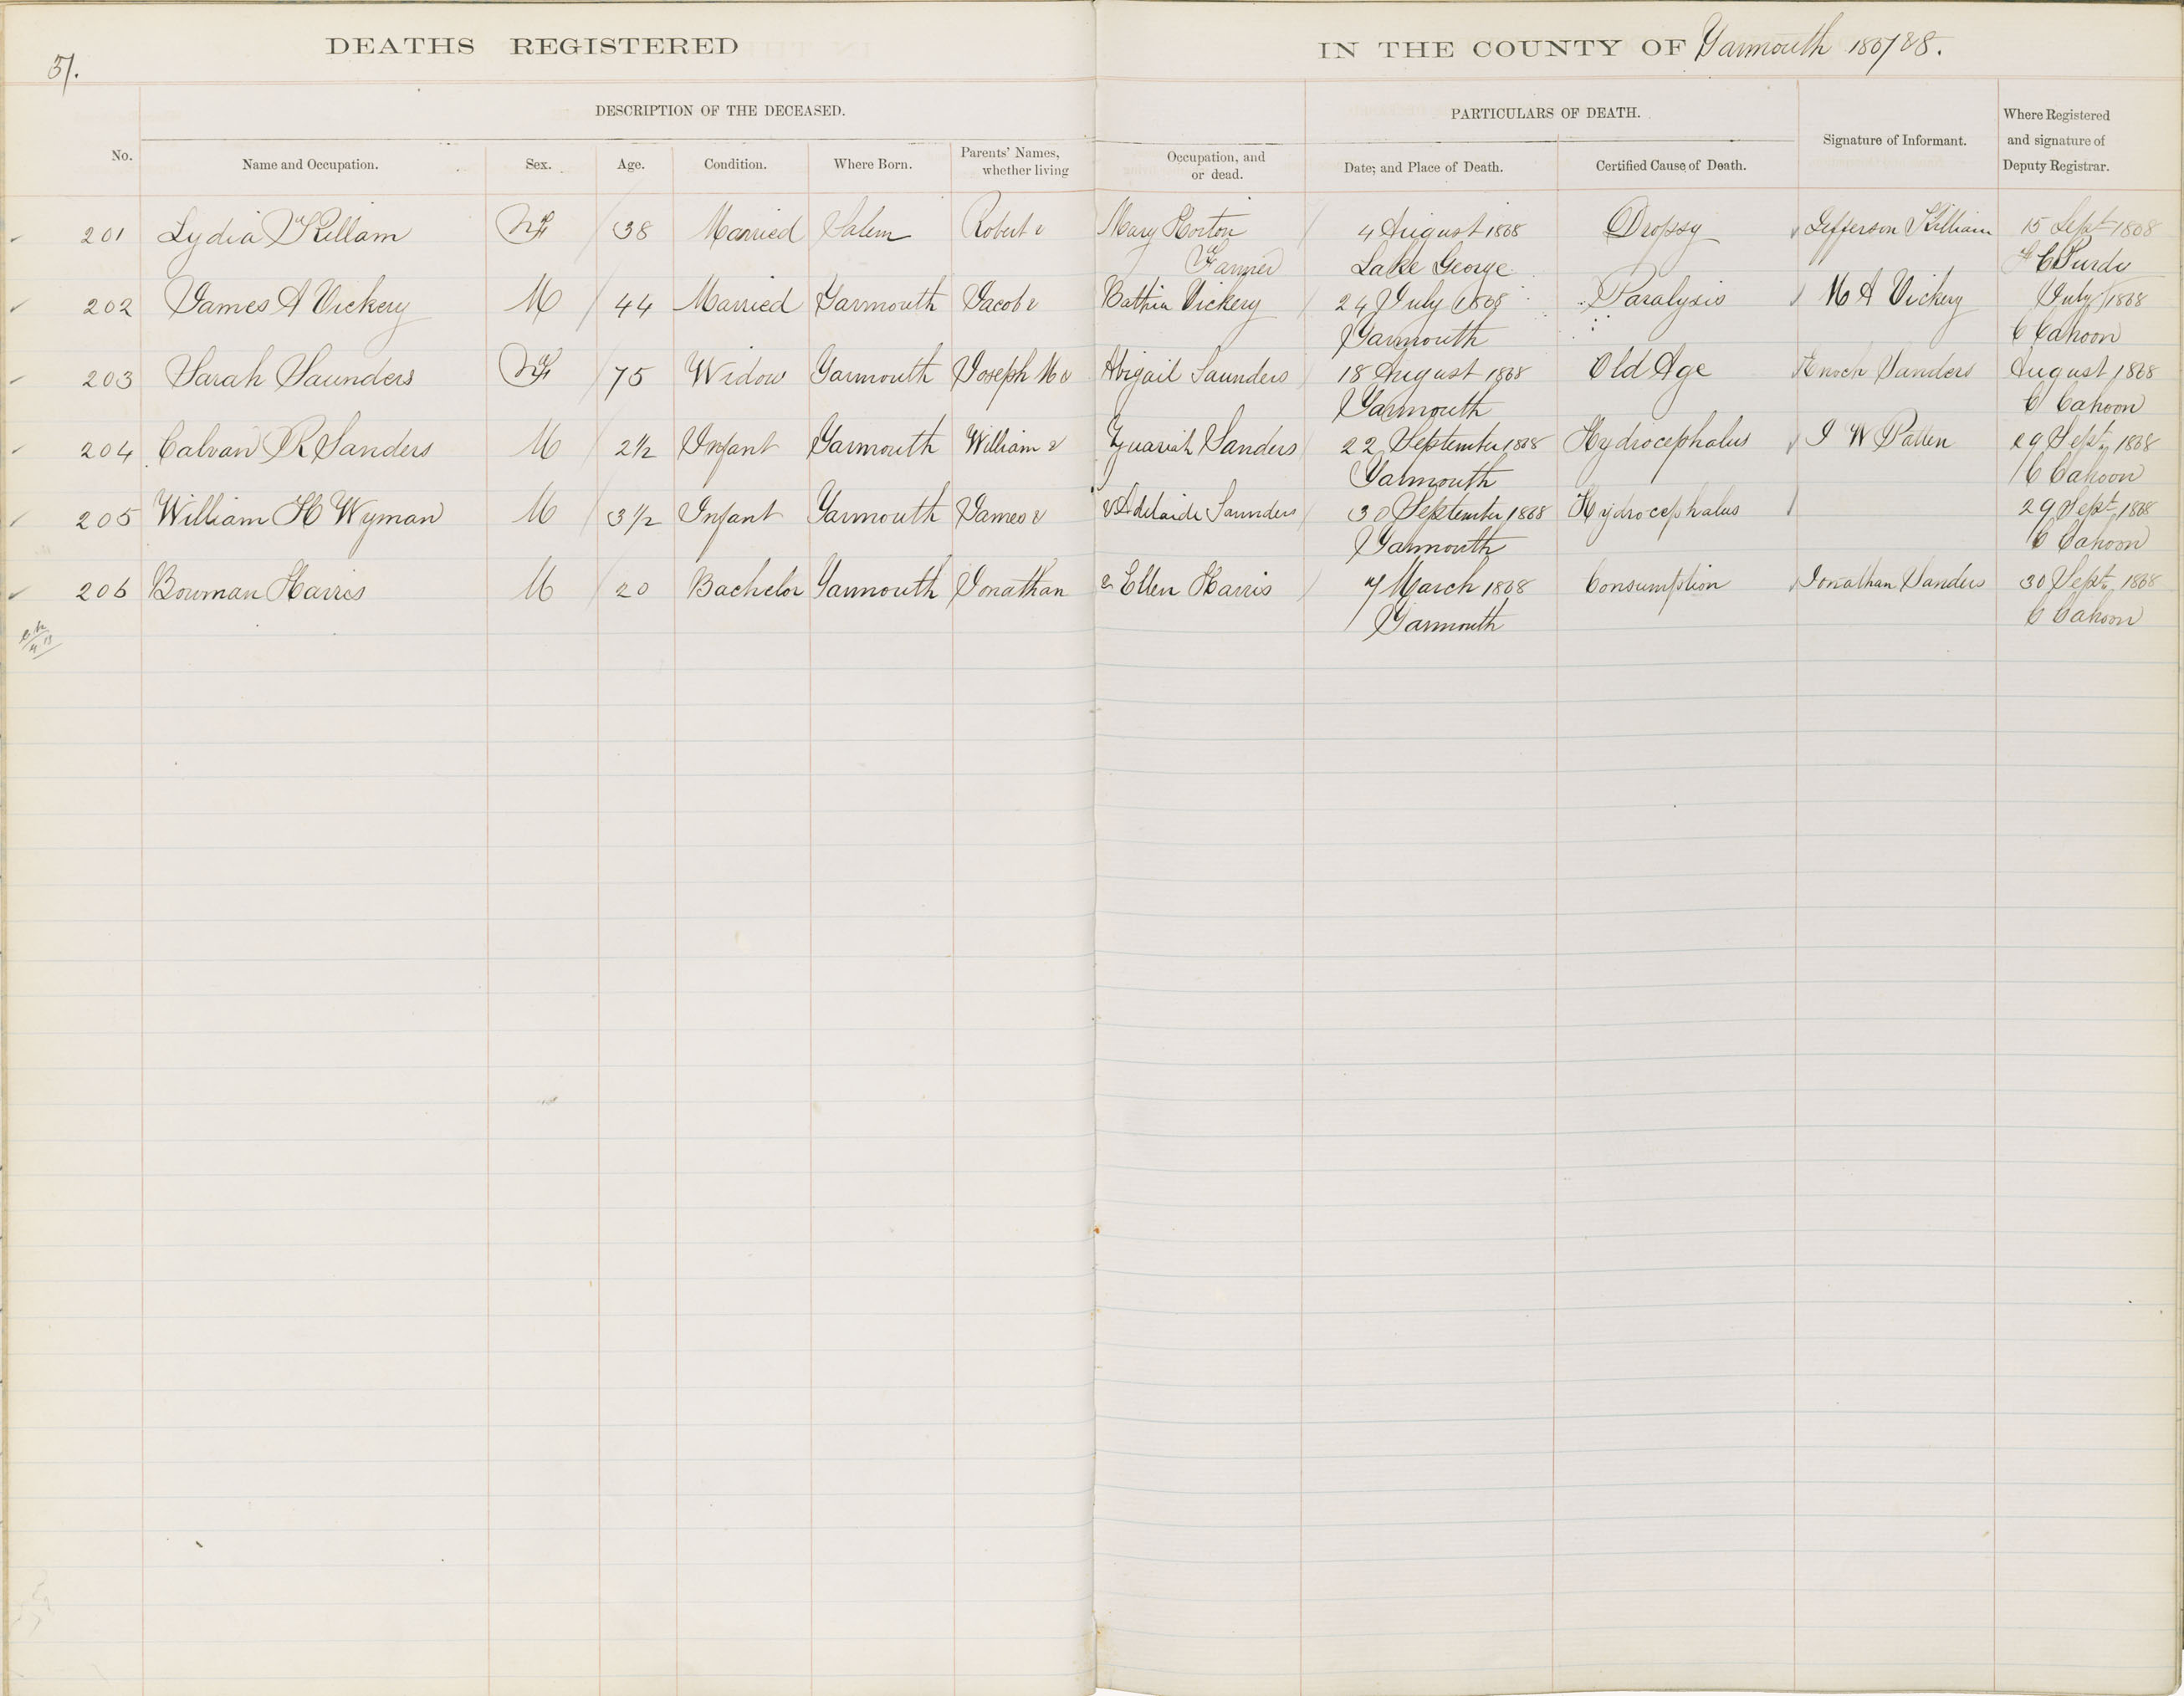 DEATHS REGISTERED IN THE COUNTY OF Yarmouth 1867/68.
51.
DESCRIPTION OF THE DECEASED. PARTICULARS OF DEATH.
No. Name and Occupation. Sex. Age. Condition. Where Born. Parents' Names, whether living Occupation, and or dead. Date; and Place of Death. Certified Cause of Death. Signature of Informant. Where Registered and signature of Deputy Registrar.
201 Lydia Killam F 38 Married Salem Robert & Mary Horton 4 August 1868 Dropsy Jefferson Killiam 15 Sept 1868
Farmer Lake George Purdy
202 James A Vickery M 44 Married Yarmouth Jacob & Bathia Vickery 24 July 1868 Paralysis M A Vickery July 1868
Yarmouth C Cahoon
203 Sarah Saunders F 75 Widow Yarmouth Joseph M & Abigail Saunders 18 August 1868 Old Age Enoch Sanders August 1868
Yarmouth C Cahoon
204 Calvan R Sanders M 2½ Infant Yarmouth William & Sanders 22 September 1868 Hydrocephalus J W Patten 29 Sept 1868
Yarmouth C Cahoon
205 William H Wyman M 3½ Infant Yarmouth James & & Adelaide Saunders 30 September 1868 Hydrocephalus 29 Sept 1868
Yarmouth C Cahoon
206 Bowman Harris M 20 Bachelor Yarmouth Jonathan & Ellen Harris 7 March 1868 Consumption Jonathan Sanders 30 Sept 1868
Yarmouth C Cahoon